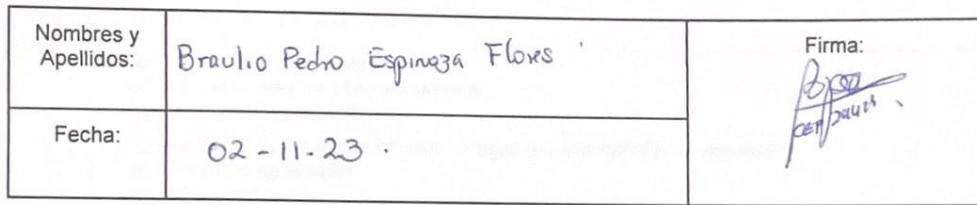 Nombres y
Apellidos:
Braulio Pedro Espinoza Flores
Firma:
Fecha:
02-11-23.